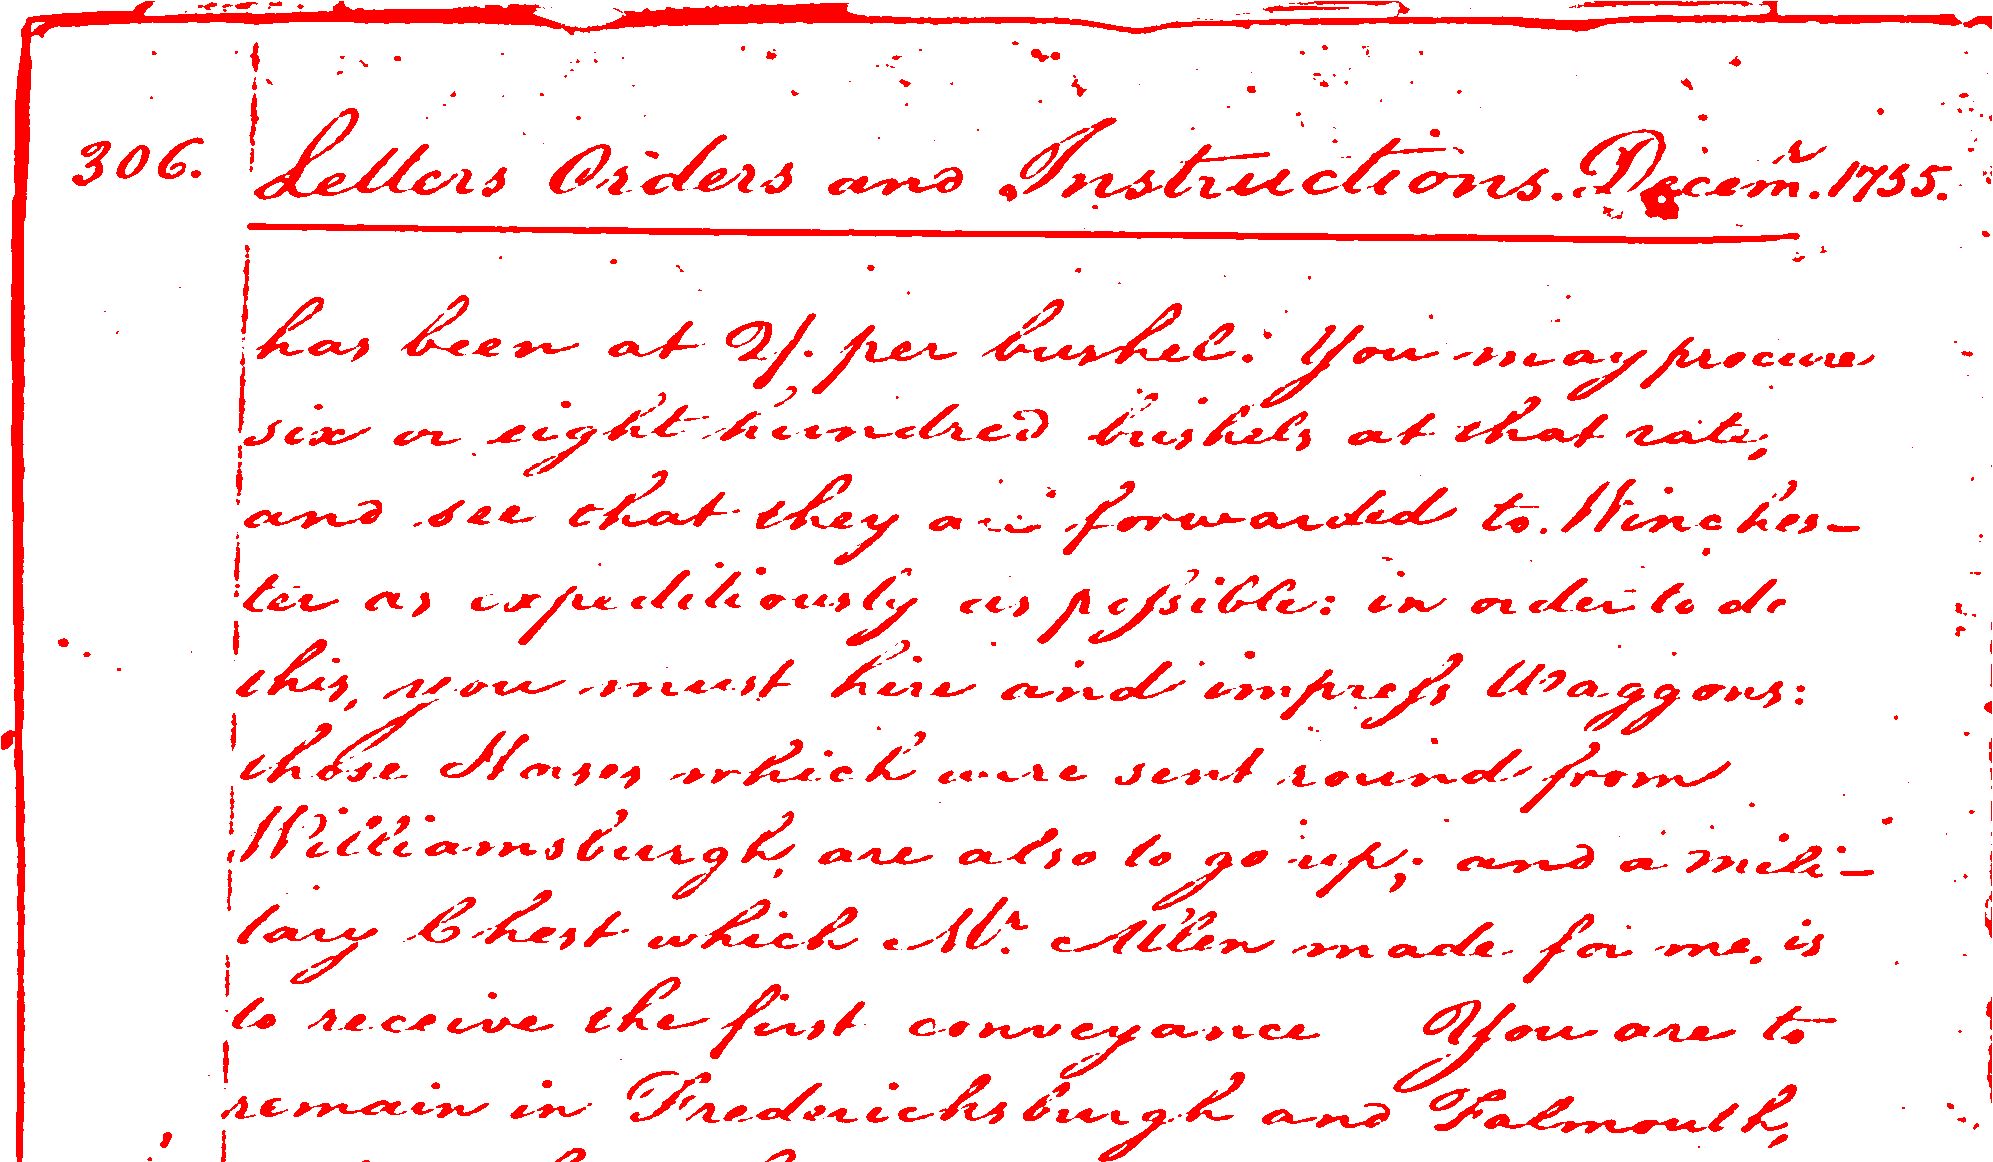 306. Letters Orders and Instructions. Decemr. 1755.
has been at 2/. per bushel: You may procure
six or eight hundred bushels at that rate,
and see that they are forwarded to Winches-
ter as expeditiously as possible: in order to do
this, you must hire and impress Waggons:
those Horses which were sent round from
Williamsburgh, are also to go up; and a mili-
tary Chest which Mr. Allen made for me, is
to receive the first conveyance You are to
remain in Fredericksburgh and Falmouth,